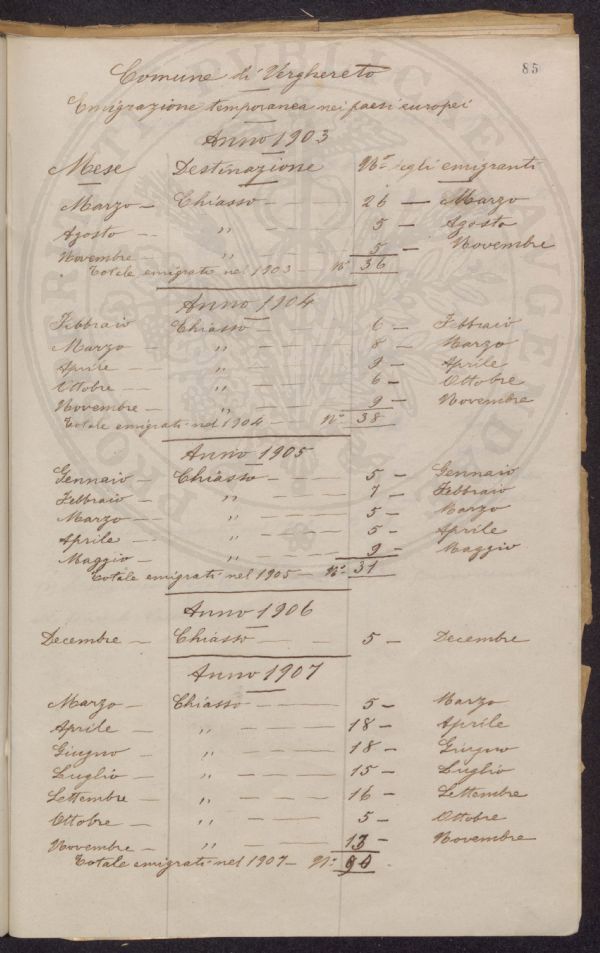 85
Comune di Verghereto
Emigrazione temporanea nei paesi europei
Anno 1903
Mese Destinazione N.° degli emigranti
Marzo — Chiasso — — — 26 — Marzo
Agosto — — „ — — — 5 — Agosto
Novembre — „ — — — 5 — Novembre
Totale emigrati nel 1903 — N° 36
Anno 1904
Febbraio Chiasso — — — 6 — Febbraio
Marzo — „ — — — 8 — Marzo
Aprile — — „ — — — 9 — Aprile
Ottobre — — „ — — — 6 — Ottobre
Novembre — „ — — — 9 — Novembre
Totale emigrati nel 1904 — N° 38
Anno 1905
Gennaio — Chiasso — — — 5 — Gennaio
Febbraio — „ — — — 7 — Febbraio
Marzo — — „ — — — 5 — Marzo
Aprile — — „ — — — 5 — Aprile
Maggio — „ — — — 9 — Maggio
Totale emigrati nel 1905 — N° 31
Anno 1906
Decembre — Chiasso — — — 5 — Decembre
Anno 1907
Marzo — Chiasso — — — 5 — Marzo
Aprile — „ — — — — 18 — Aprile
Giugno — „ — — — — 18 — Giugno
Luglio — „ — — — — 15 — Luglio
Settembre — „ — — — — 16 — Settembre
Ottobre — „ — — — — 5 — Ottobre
Novembre — „ — — — — 13 — Novembre
Totale emigrati nel 1907 — N° 90